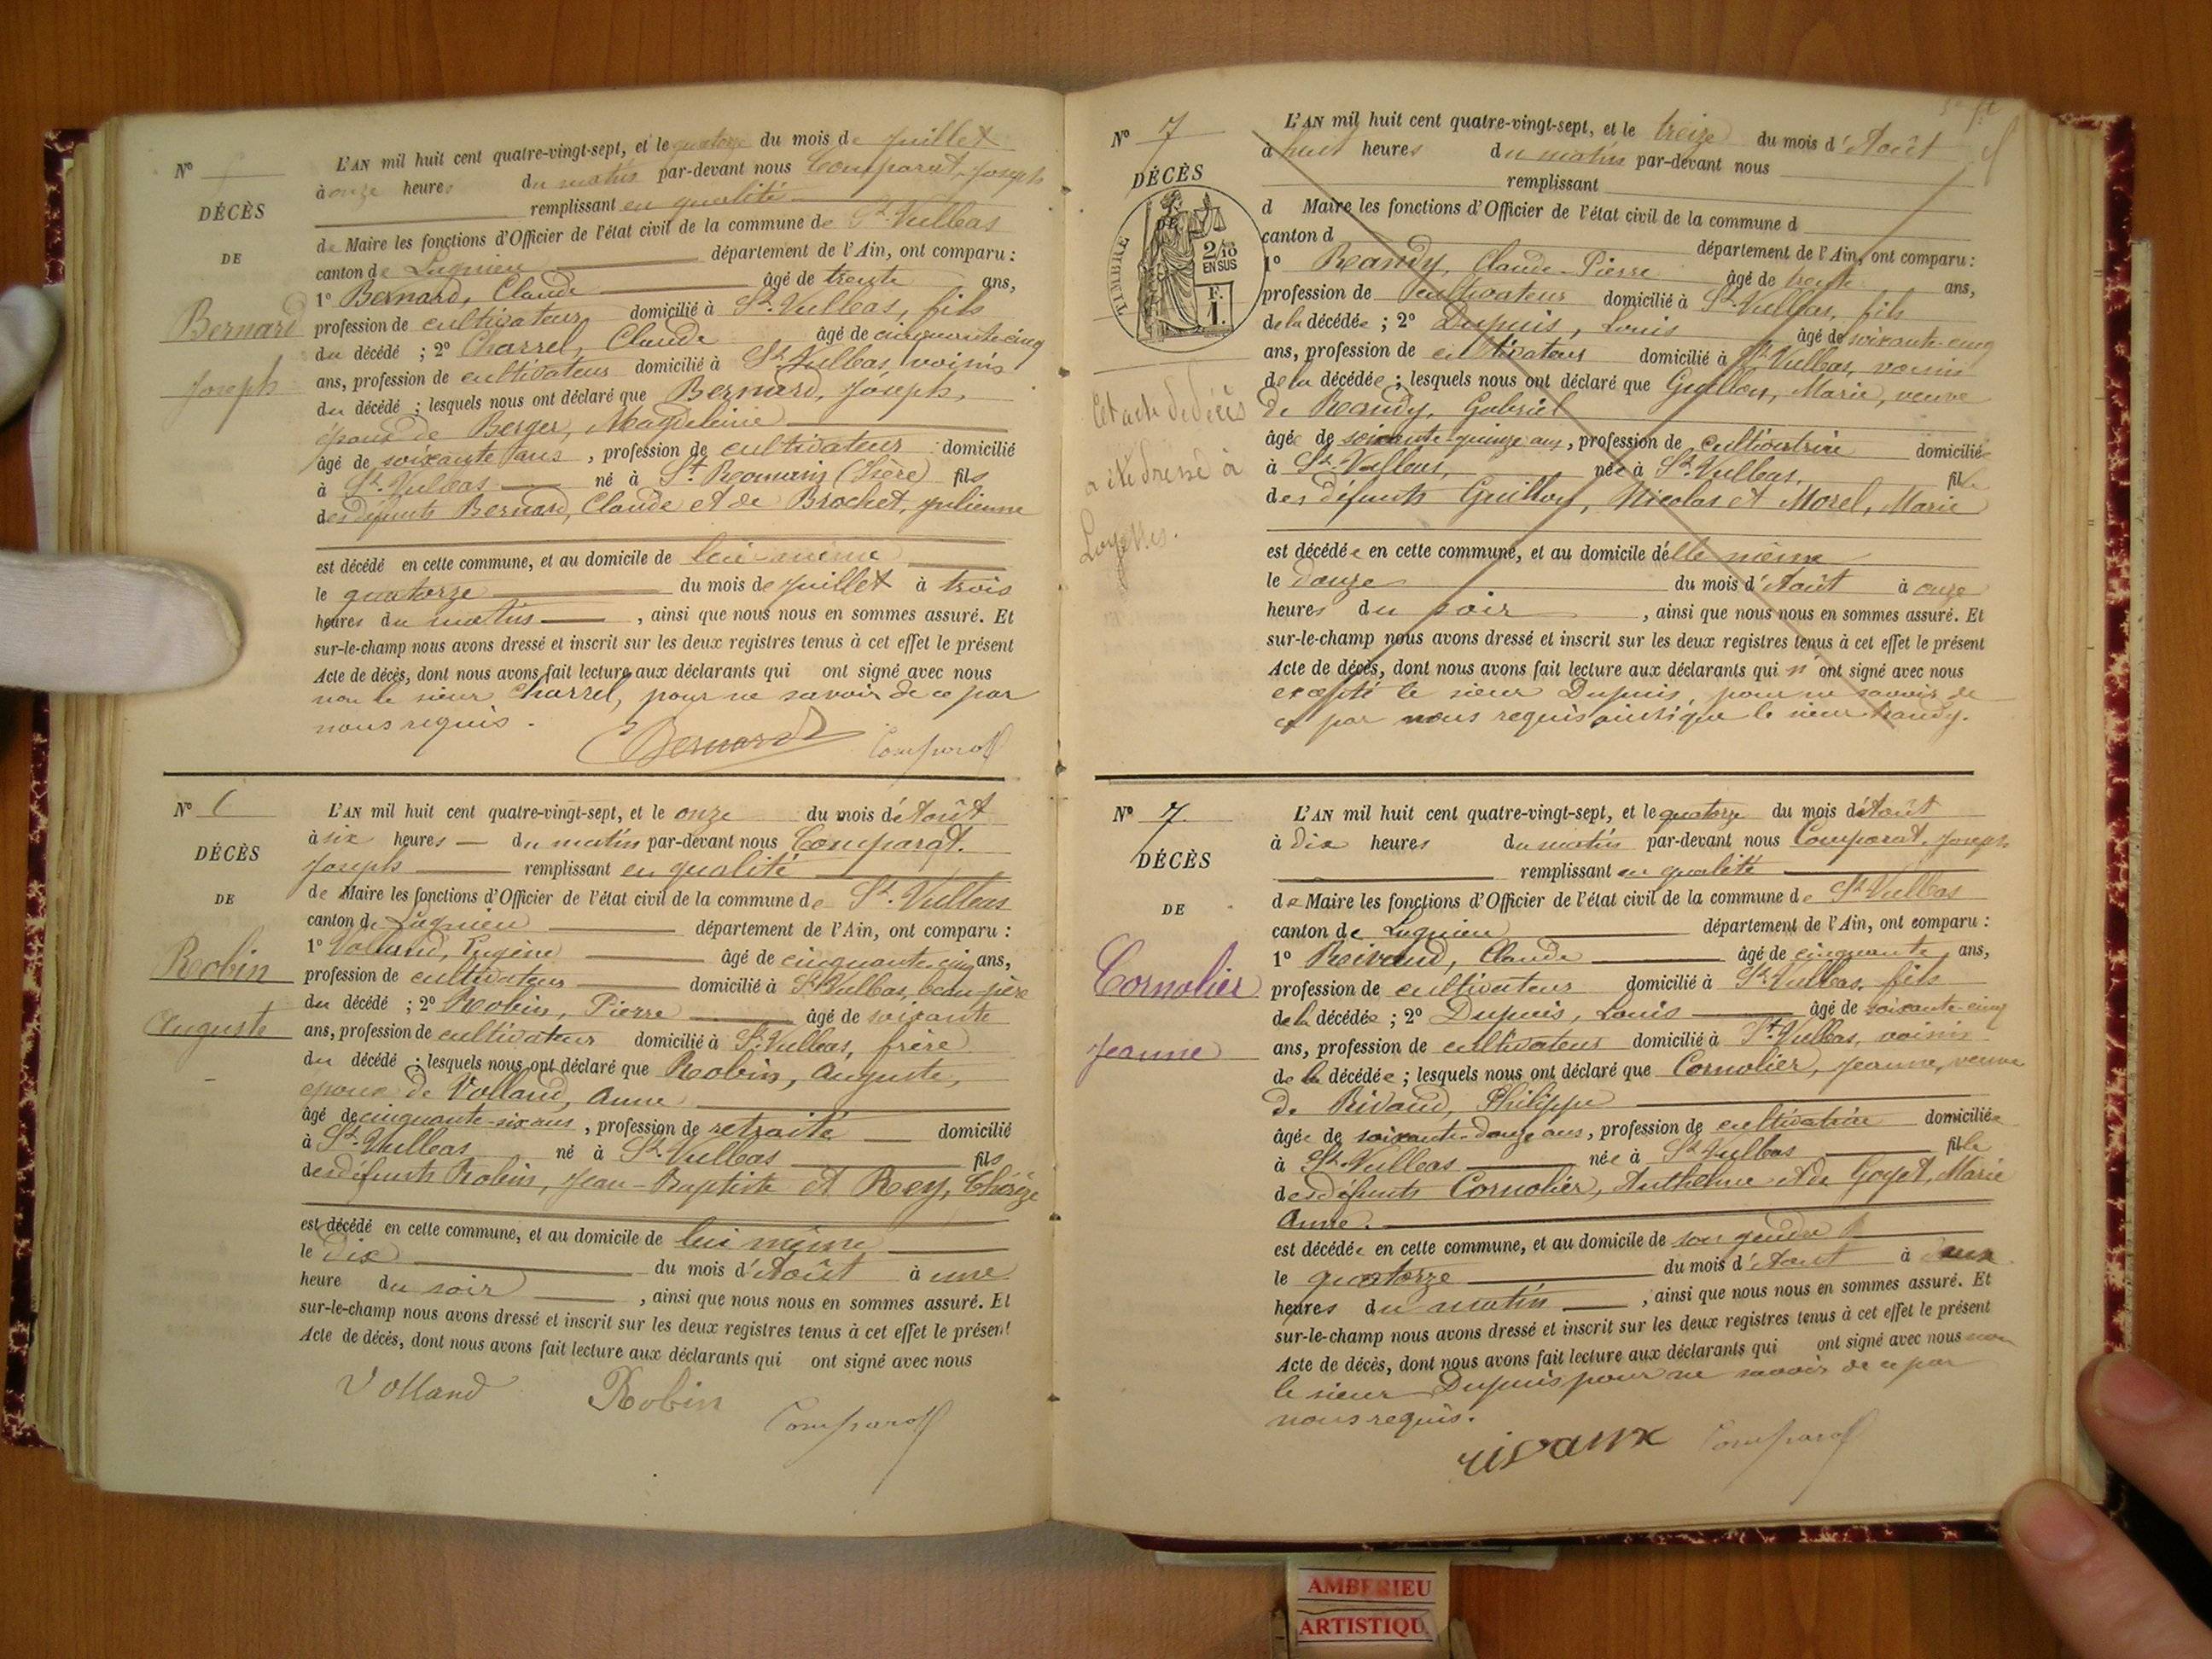 N°
DÉCÈS
DE
Bernard
Joseph
L'AN mil huit cent quatre-vingt-sept, et le quatorze du mois de Juillet
à onze heures du matin par-devant nous Comparat, Joseph
remplissant en qualité
de Maire les fonctions d'Officier de l'état civil de la commune de St. Vulbas
canton de Lagnieu département de l'Ain, ont comparu :
1° Bernard, Claude âgé de trente ans,
profession de cultivateur domicilié à St. Vulbas, fils
du décédé ; 2° Charrel, Claude âgé de cinquante-cinq
ans, profession de cultivateur domicilié à St. Vulbas, voisin
du décédé ; lesquels nous ont déclaré que Bernard, Joseph,
époux de Berger, Magdeleine
âgé de soixante ans, profession de cultivateur domicilié
à St. Vulbas né à St. Romain (Isère) fils
des défunts Bernard, Claude et de Brochet, Julienne
est décédé en cette commune, et au domicile de lui-même
le quatorze du mois de Juillet à trois
heures du matin, ainsi que nous nous en sommes assuré. Et
sur-le-champ nous avons dressé et inscrit sur les deux registres tenus à cet effet le présent
Acte de décès, dont nous avons fait lecture aux déclarants qui ont signé avec nous
non le sieur Charrel, pour ne savoir de ce par
nous requis.
Bernard Comparat
N° 6
DÉCÈS
DE
Robin
Auguste
L'AN mil huit cent quatre-vingt-sept, et le onze du mois d'Août
à six heures du matin par-devant nous Comparat,
Joseph remplissant en qualité
de Maire les fonctions d'Officier de l'état civil de la commune de St. Vulbas
canton de Lagnieu département de l'Ain, ont comparu :
1° Volland, Eugène âgé de cinquante-cinq ans,
profession de cultivateur domicilié à St Vulbas, beau-père
du décédé ; 2° Robin, Pierre âgé de soixante
ans, profession de cultivateur domicilié à St. Vulbas, frère
du décédé ; lesquels nous ont déclaré que Robin, Auguste,
époux de Volland, Anne
âgé de cinquante-six ans, profession de retraité domicilié
à St. Vulbas né à St. Vulbas fils
des défunts Robin, Jean-Baptiste et Rey, Thérèze
est décédé en cette commune, et au domicile de lui même
le dix du mois d'Août à une
heure du soir, ainsi que nous nous en sommes assuré. Et
sur-le-champ nous avons dressé et inscrit sur les deux registres tenus à cet effet le présent
Acte de décès, dont nous avons fait lecture aux déclarants qui ont signé avec nous
Volland Robin
Comparat
N° 7
DÉCÈS
DE
TIMBRE
2/10
EN SUS
F.
1.
Cet acte de décès
a été dressé à
Loyettes.
L'AN mil huit cent quatre-vingt-sept, et le treize du mois d'Août
à huit heures du matin par-devant nous
remplissant
d Maire les fonctions d'Officier de l'état civil de la commune d
canton d département de l'Ain, ont comparu :
1° Randy, Claude-Pierre âgé de trente ans,
profession de cultivateur domicilié à St. Vulbas, fils
de la décédée ; 2° Dupuis, Louis âgé de soixante-cinq
ans, profession de cultivateur domicilié à St. Vulbas, voisin
de la décédée ; lesquels nous ont déclaré que Guillon, Marie, veuve
de Randy, Gabriel
âgée de soixante-quinze ans, profession de cultivatrice domicilié
à St. Vulbas, née à St. Vulbas, fille
des défunts Guillon, Nicolas et Morel, Marie
est décédée en cette commune, et au domicile d'elle même
le douze du mois d'Août à onze
heures du soir, ainsi que nous nous en sommes assuré. Et
sur-le-champ nous avons dressé et inscrit sur les deux registres tenus à cet effet le présent
Acte de décès, dont nous avons fait lecture aux déclarants qui n'ont signé avec nous
excepté le sieur Dupuis, pour ne savoir de
ce par nous requis ainsi que le sieur Randy.
N° 7
DÉCÈS
DE
Cornolier
Jeanne
L'AN mil huit cent quatre-vingt-sept, et le quatorze du mois d'Août
à dix heures du matin par-devant nous Comparat, Joseph
remplissant en qualité
de Maire les fonctions d'Officier de l'état civil de la commune de St. Vulbas
canton de Lagnieu département de l'Ain, ont comparu :
1° Rivaud, Claude âgé de cinquante ans,
profession de cultivateur domicilié à St. Vulbas, fils
de la décédée ; 2° Dupuis, Louis âgé de soixante-cinq
ans, profession de cultivateur domicilié à St. Vulbas, voisin
de la décédée ; lesquels nous ont déclaré que Cornolier, Jeanne, veuve
de Rivaud, Philippe
âgée de soixante-douze ans, profession de cultivatrice domiciliée
à St. Vulbas née à St. Vulbas fille
des défunts Cornolier, Anthelme et de Goyet, Marie
Anne.
est décédée en cette commune, et au domicile de son gendre
le quatorze du mois d'Août à deux
heures du matin, ainsi que nous nous en sommes assuré. Et
sur-le-champ nous avons dressé et inscrit sur les deux registres tenus à cet effet le présent
Acte de décès, dont nous avons fait lecture aux déclarants qui ont signé avec nous non
le sieur Dupuis pour ne savoir de ce par
nous requis.
rivaux Comparat
AMBERIEU
ARTISTIQU